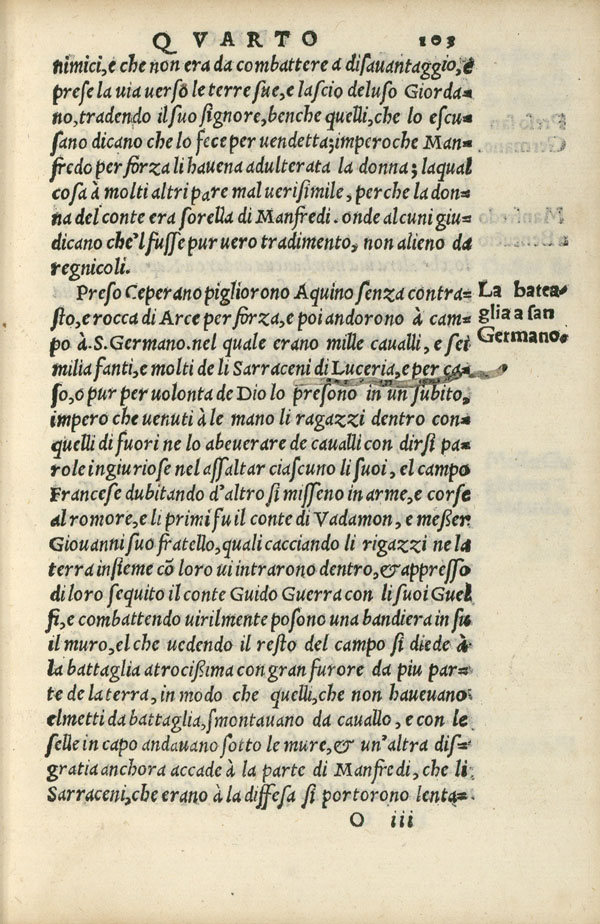 QVARTO 103
nimici, e che non era da combattere a disauantaggio, e
prese la uia uersò le terre sue, e lascio deluso Giorda=
no, tradendo il suo signore, benche quelli, che lo escu=
sano dicano che lo fece per uendetta; imperoche Man=
fredo per forza li hauena adulterata la donna; laqual
cosa à molti altri pare mal uerisimile, perche la don=
na del conte era sorella di Manfredi. onde alcuni giu=
dicano che'l fusse pur uero tradimento, non alieno da
regnicoli.
Preso Ceperano pigliorono Aquino senza contra=
sto, e rocca di Arce per forza, e poi andorono à cam=
po à .S. Germano. nel quale erano mille caualli, e sei
milia fanti, e molti de li Sarraceni di Luceria, e per ca=
so, o pur per uolonta de Dio lo presono in un subito,
impero che uenuti à le mano li ragazzi dentro con=
quelli di fuori ne lo abeuerare de caualli con dirsi pa=
role ingiuriose nel assaltar ciascuno li suoi, el campo
Francese dubitando d'altro si misseno in arme, e corse
al romore, e li primi fu il conte di Vadamon, e meßer
Giouanni suo fratello, quali cacciando li rigazzi ne la
terra insieme cō loro ui intrarono dentro, & appresso
di loro sequito il conte Guido Guerra con li suoi Guel
fi, e combattendo uirilmente posono una bandiera in su
il muro, el che uedendo il resto del campo si diede à
la battaglia atrocißima con gran furore da piu par=
te de la terra, in modo che quelli, che non haueuano
elmetti da battaglia, smontauano da cauallo, e con le
selle in capo andauano sotto le mure, & un'altra dis=
gratia anchora accade à la parte di Manfredi, che li
Sarraceni, che erano à la diffesa si portorono lenta=
O iii
La batta=
glia a san
Germano.